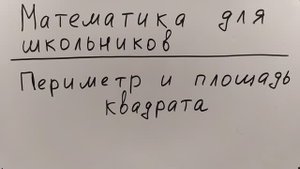 Математика для
школьников
Периметр и площадь
квадрата